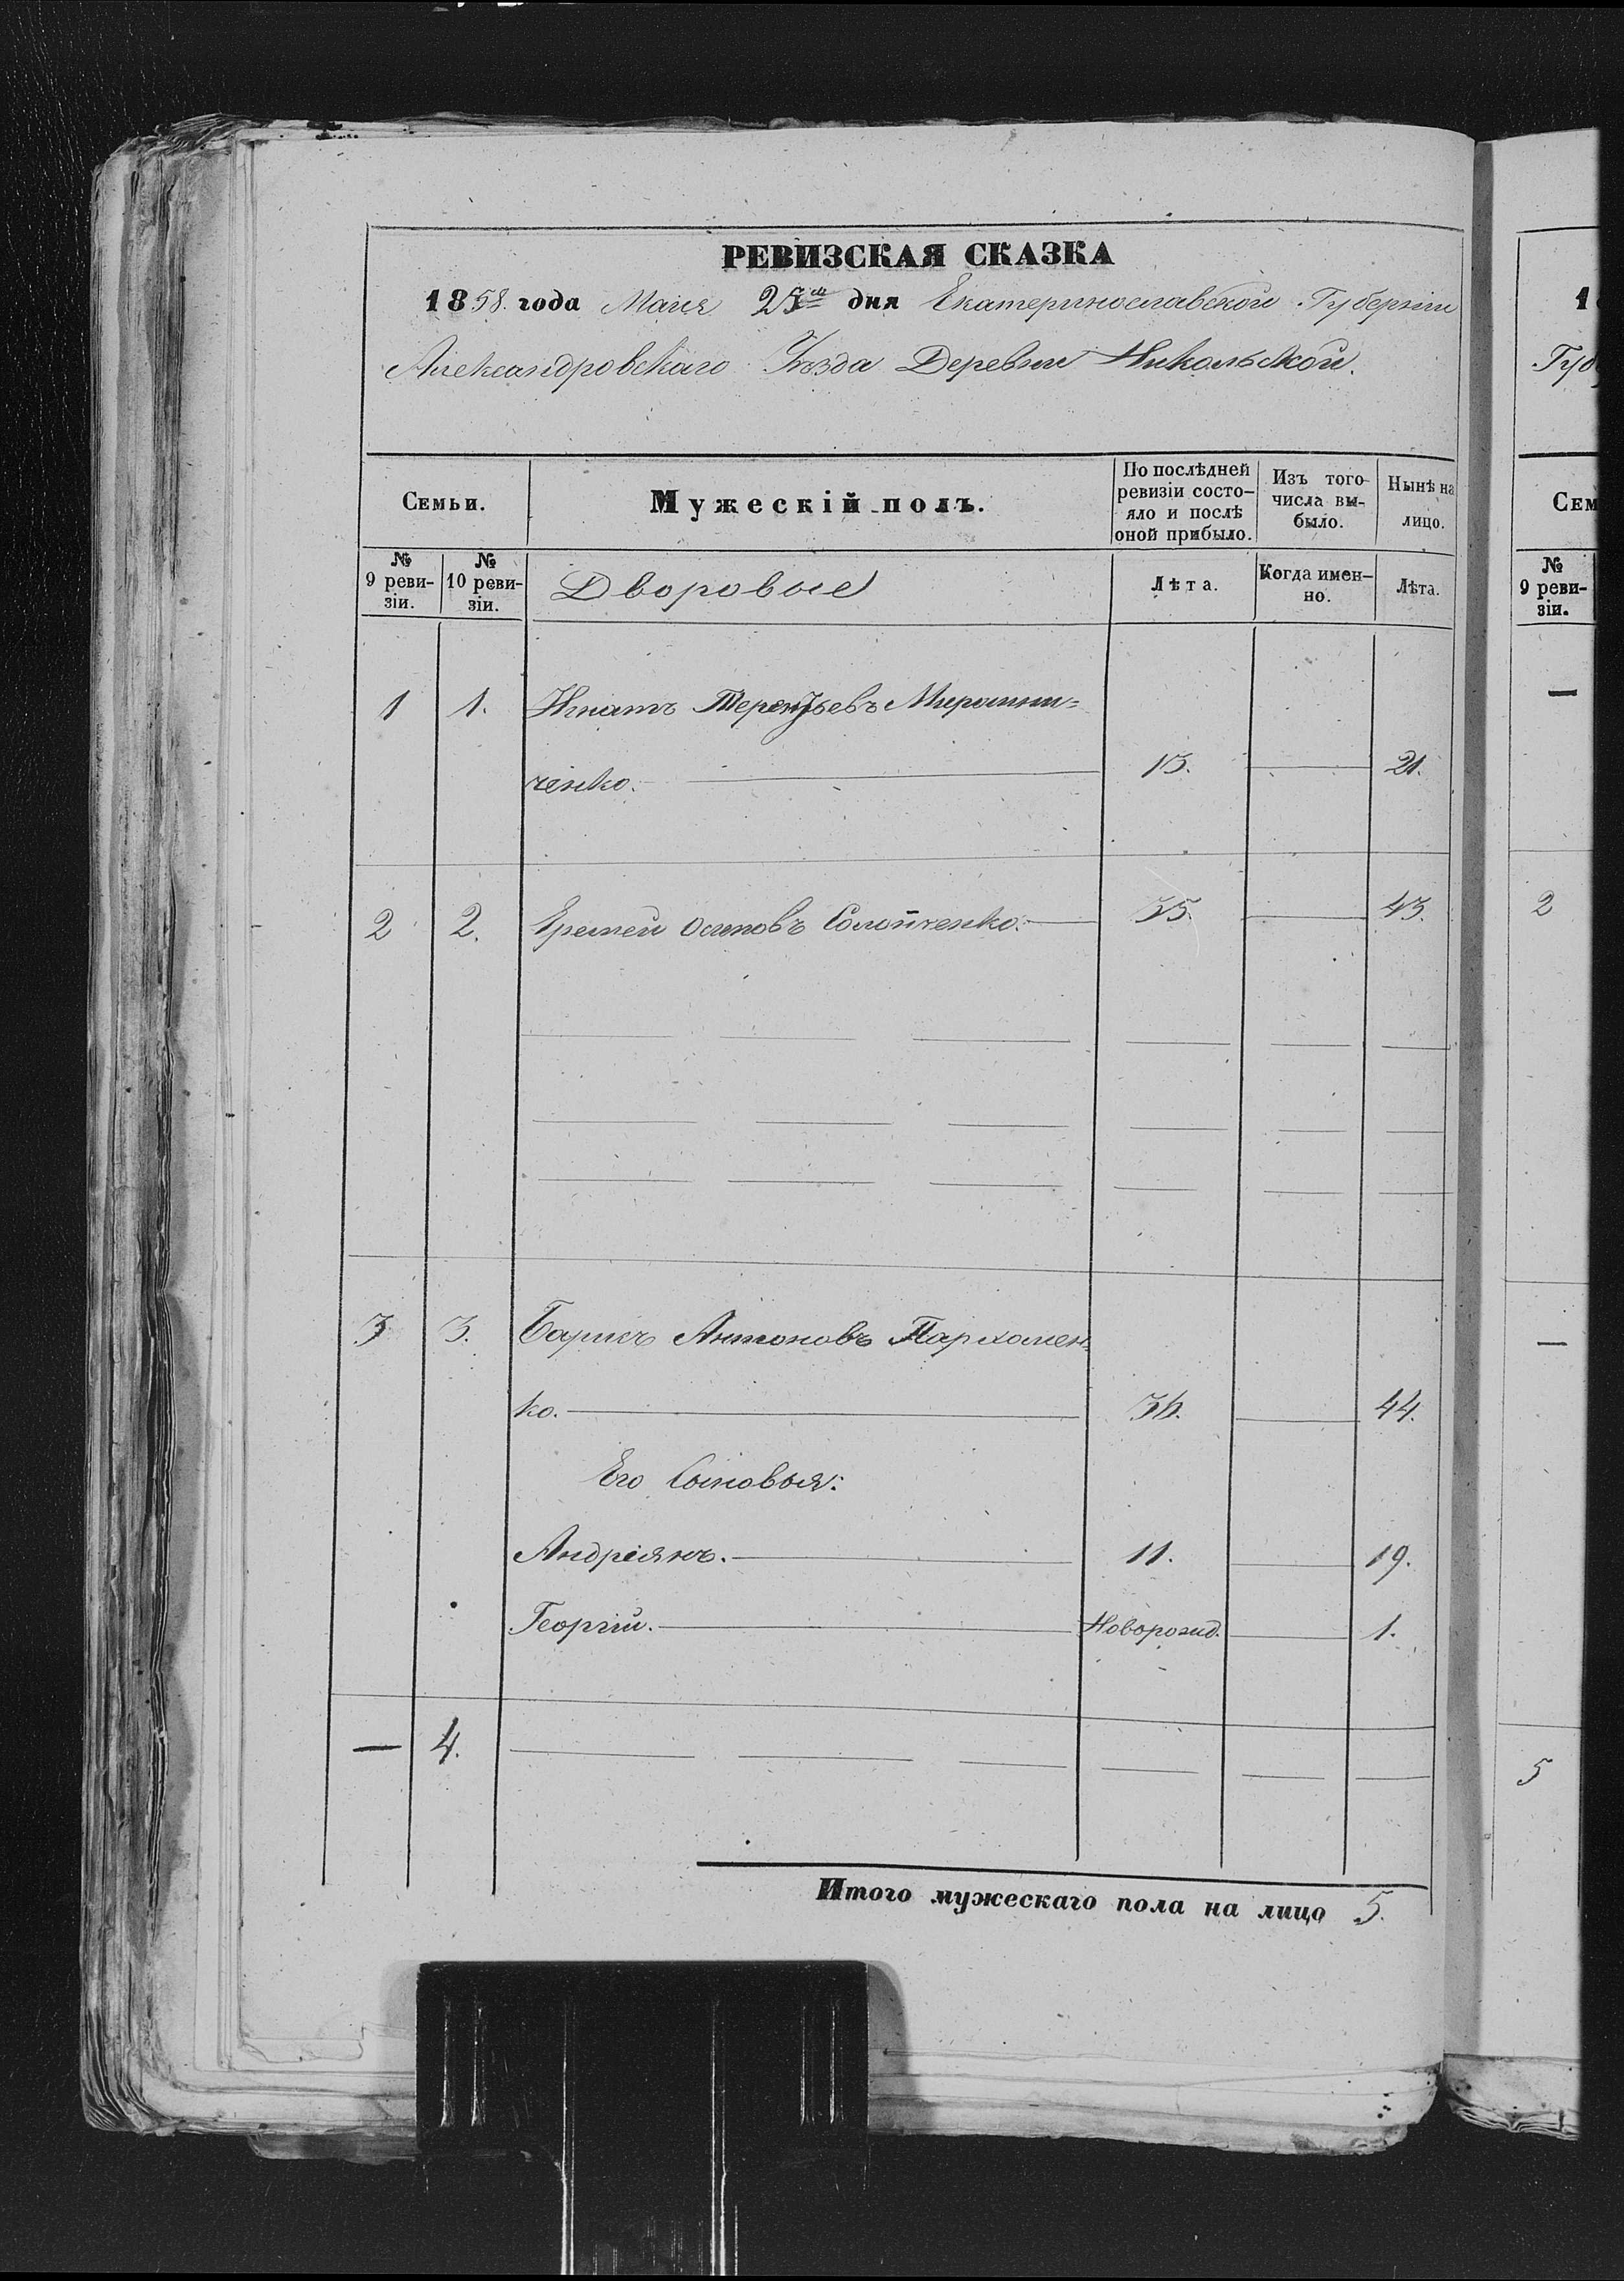 РЕВИЗСКАЯ СКАЗКА
1858. года Маия 25го дня Екатеринославской Губерніи
Александровскаго Уѣзда Деревни Никольской.
Семьи.
Мужескій полъ.
По послѣдней ревизіи состо-яло и послѣ оной прибыло.
Изъ того числа вы-было.
Нынѣ на лицо.
№ 9 реви-зіи.
№ 10 реви-зіи.
Дворовые
Лѣта.
Когда имен-но.
Лѣта.
1 1. Игнатъ Терентьевъ Мирошни=
ченко. 13. 21.
2 2. Еремей Осиповъ 35. 43.
3 3. Антоновъ Пархомен=
ко. 36. 44.
Его Сыновья:
Андріянъ. 11. 19.
Георгій. Новорожд. 1.
— 4.
Итого мужескаго пола на лицо 5.
1
Губ
Сем
№ 9 реви-зіи.
—
2
—
5